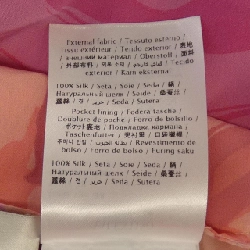 External fabric / Tessuto esterno /
Tissu extérieur / Tejido exterior / 表地
/ Oberstoff /
/ 外部布料 / Tecido
exterior / Kain eksternal
100% Silk / Seta / Soie / Seda / 絹 /
Натуральный шелк / Seide /
/ Seda / Sutera
Pocket lining / Fodera tasche /
Doublure de poche / Forro de bolsillo /
ポケット裏地 /
Taschenfutter /
/ Revestimento de
bolso / Forro de bolso / Furing saku
100% Silk / Seta / Soie / Seda / 絹 /
Натуральный шелк / Seide /
/ Seda / Sutera